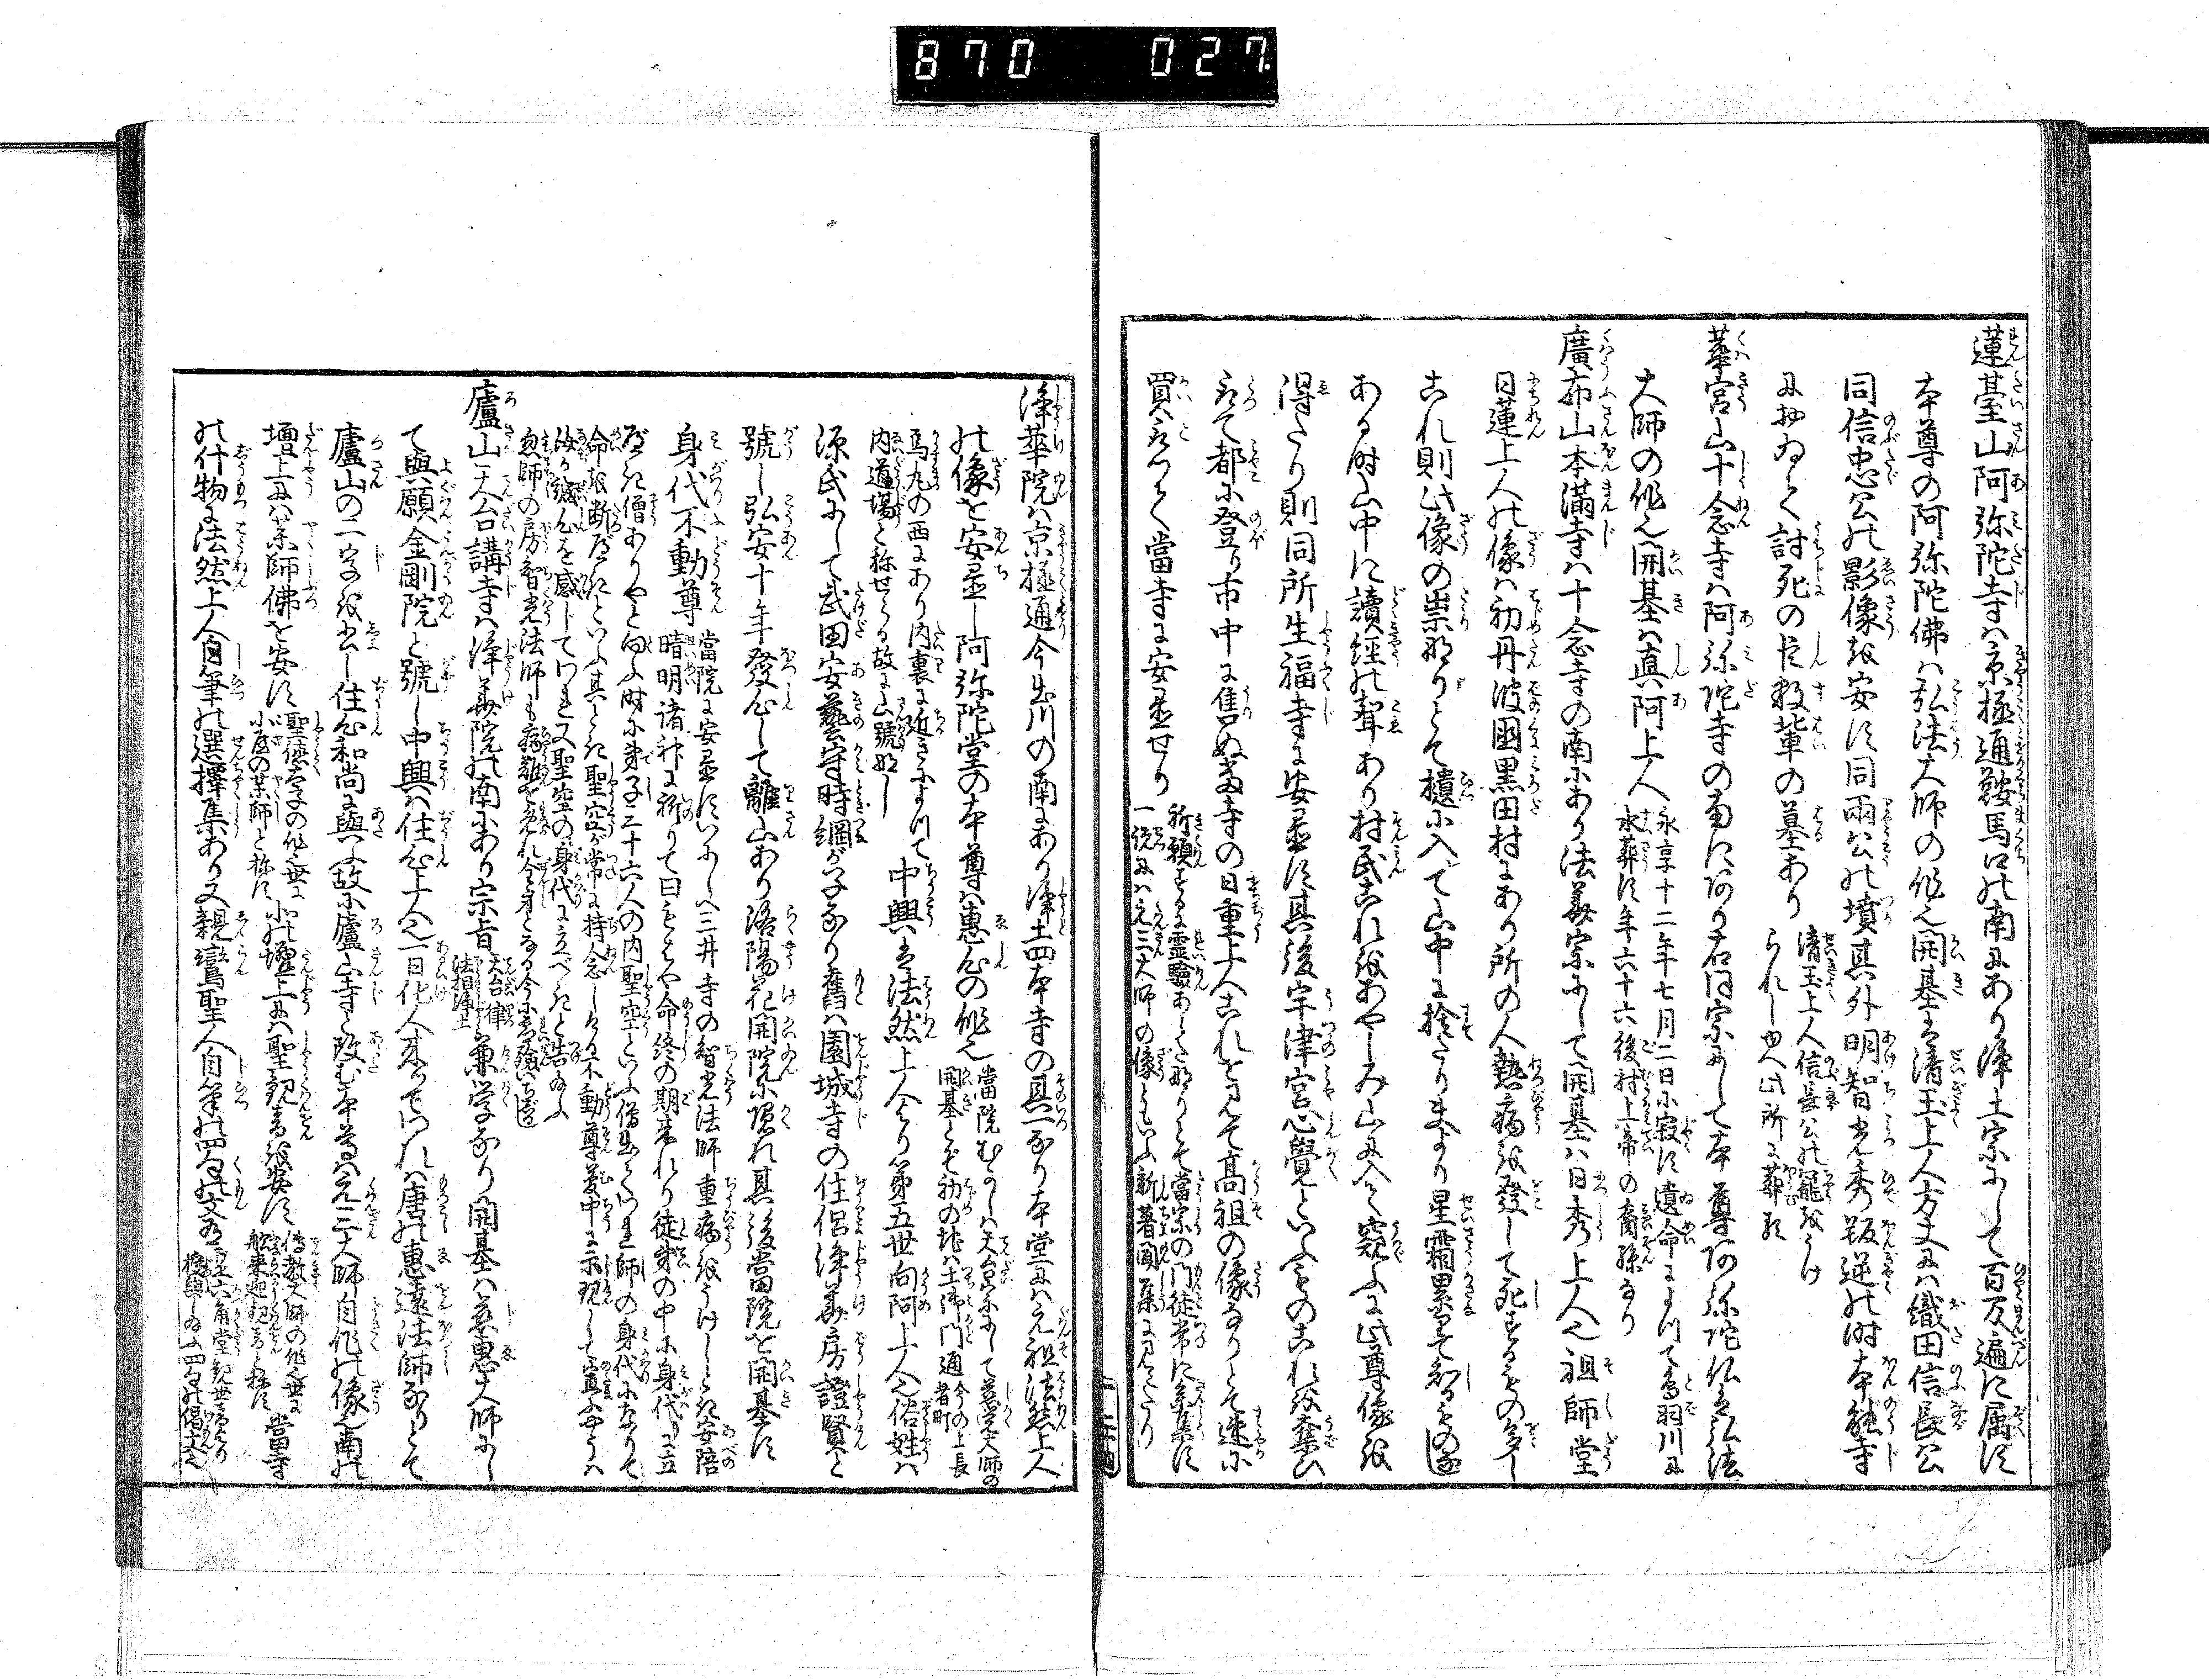 870 027
蓮䑓山阿弥陀寺ハ京極通鞍馬口の南にあり浄土宗にして百万遍に属す
本尊の阿弥陀佛ハ弘法大師の作也開基は清玉上人方丈にハ織田信長公
同信忠公の影像を安す同両公の墳其外明智日光秀叛逆の時本能寺
にゐて討死の臣数輩の墓あり
清玉上人信長公の寵をうけ
られしゆへ此所に葬る
華宮山十念寺ハ阿弥陀寺の南にあり右同宗にして本尊阿弥陀仏は弘法
大師の作也開基ハ真阿上人
永享十二年七月二日に寂す遺命によつて鳥羽川に
水葬す年六十六後村上帝の裔孫なり
廣布山本満寺ハ十念寺の南にあり法華宗にして開基ハ日秀上人也祖師堂
日蓮上人の像ハ初丹波國黒田村にあり所の人熱病を發して死するもの多し
これ則此像の祟なりとて櫃に入て山中に捨たりまより星霜累て知るもの
ある時山中に讀經の聲あり村民これをあやしみ山に入て窺ふに此尊像を
得たり則同所生福寺に安置す其後宇津宮心覺といふものこれを奪ひ
取て都に登り市中に售ぬ当寺の日重上人これをきゝて高祖の像なりとて速に
買取て當寺に安置せり
祈願するに霊験あらたなりとて當宗の門徒常に羣集す
一説にハ元三大師の像ともいふ新著聞集に見えたり
浄華院ハ京極通今出川の南にあり浄土四本寺の其一なり本堂にハ元祖法然上人
の像を安置し阿弥陀堂の本尊ハ惠心の作也
當院むかしハ天台宗にして慈覚大師の
開基とぞ初の地ハ土御門通今の上長者町
烏丸の西にあり内裏に近きによつて
内道場と称せらる故に山號なし
中興は法然上人より第五世向阿上人也俗姓ハ
源氏にして武田安藝守時綱が子なり舊ハ園城寺の住侶浄華房證賢と
號し弘安十年發心して離山あり洛陽花開院に隠れ其後當院を開基す
身代不動尊
當院に安置すいにしへ三井寺の智光法師重病をうけしとき安陪
晴明諸神に祈りて曰もはや命終の期来れり徒弟の中に身代り立
べき僧ありやと問ふ時に弟子三十六人の内聖空といふ僧出てわれ師の身代になりて
命を断べきといふ其とき聖空が常に持念しける不動尊夢中に示現して宣ふやうハ
汝が誠心を感じてわれ又聖空の身代に立べきと告給ふ
忽師の房智光法師も病難を免れ
廬山天台講寺ハ浄華院の南にあり宗旨
天台律
法相浄土
兼学なり開基ハ慈惠大師にし
て與願金剛院と號し中興ハ住心上人也一日化人来てわれハ唐の惠遠法師なりとて
廬山の二字を出し住心和尚に與ふ故に廬山寺と改む本尊ハ元三大師自作の像也南の
壇上にハ薬師佛を安す
聖徳太子の作也世に
小屋の薬師と称す
北の壇上にハ聖観音を安す
傳教大師の作也世に
船来迎観音と称す
當寺
の什物に法然上人自筆の選擇集あり又親鸞聖人自筆の四句の文あ
是六角堂観世音より
授與し給ふ四句の偈文也